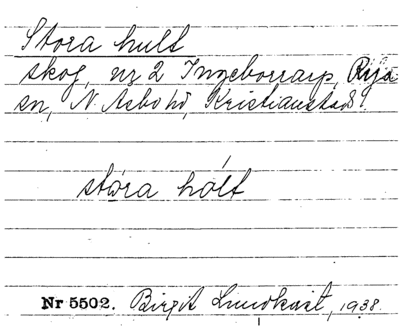 Stora hult
skog, nr 2 Ingeborrarp, Röja
sn, N Åsbo hd, Kristianstads l.
stóra hólt
Nr 5502. Birgit Lundkvist, 1938.